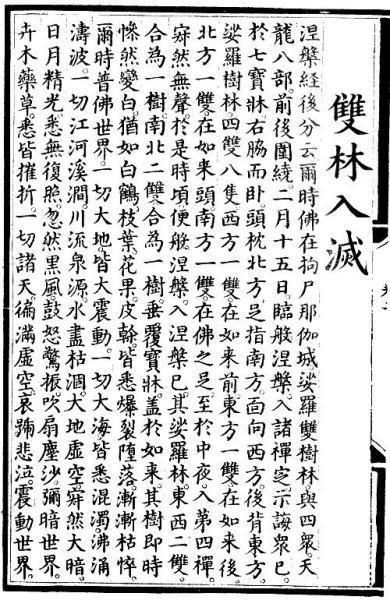 雙林入滅
涅槃經後分云爾時佛在拘尸那伽城娑羅雙樹林與四眾天
龍八部前後圍繞。二月十五日臨般涅槃。入諸禪定。示誨眾已。
於七寶牀右脇而臥。頭枕北方。足指南方。面向西方。後背東方。
娑羅樹林。四雙八隻。西方一雙。在如来前。東方一雙。在如来後。
北方一雙。在如来頭。南方一雙。在佛之足。至於中夜。入第四禪。
寂然無聲。於是時頃。便般涅槃。入涅槃已。其娑羅林。東西二雙。
合為一樹。南北二雙。合為一樹。垂覆寶牀。蓋於如来。其樹即時
慘然變白。猶如白鶴。枝葉花果。皮幹皆悉爆裂墮落。漸漸枯悴。
爾時普佛世界。一切大地皆大震動。一切大海皆悉混濁。沸涌
濤波。一切江河溪澗。川流泉源。水盡枯涸。大地虛空。寂然大暗。
日月精光。悉無復照。忽然黑風。鼓怒驚振。吹扇塵沙。彌暗世界。
卉木藥草。悉皆摧折。一切諸天。徧滿虛空。哀踊悲泣。震動世界。